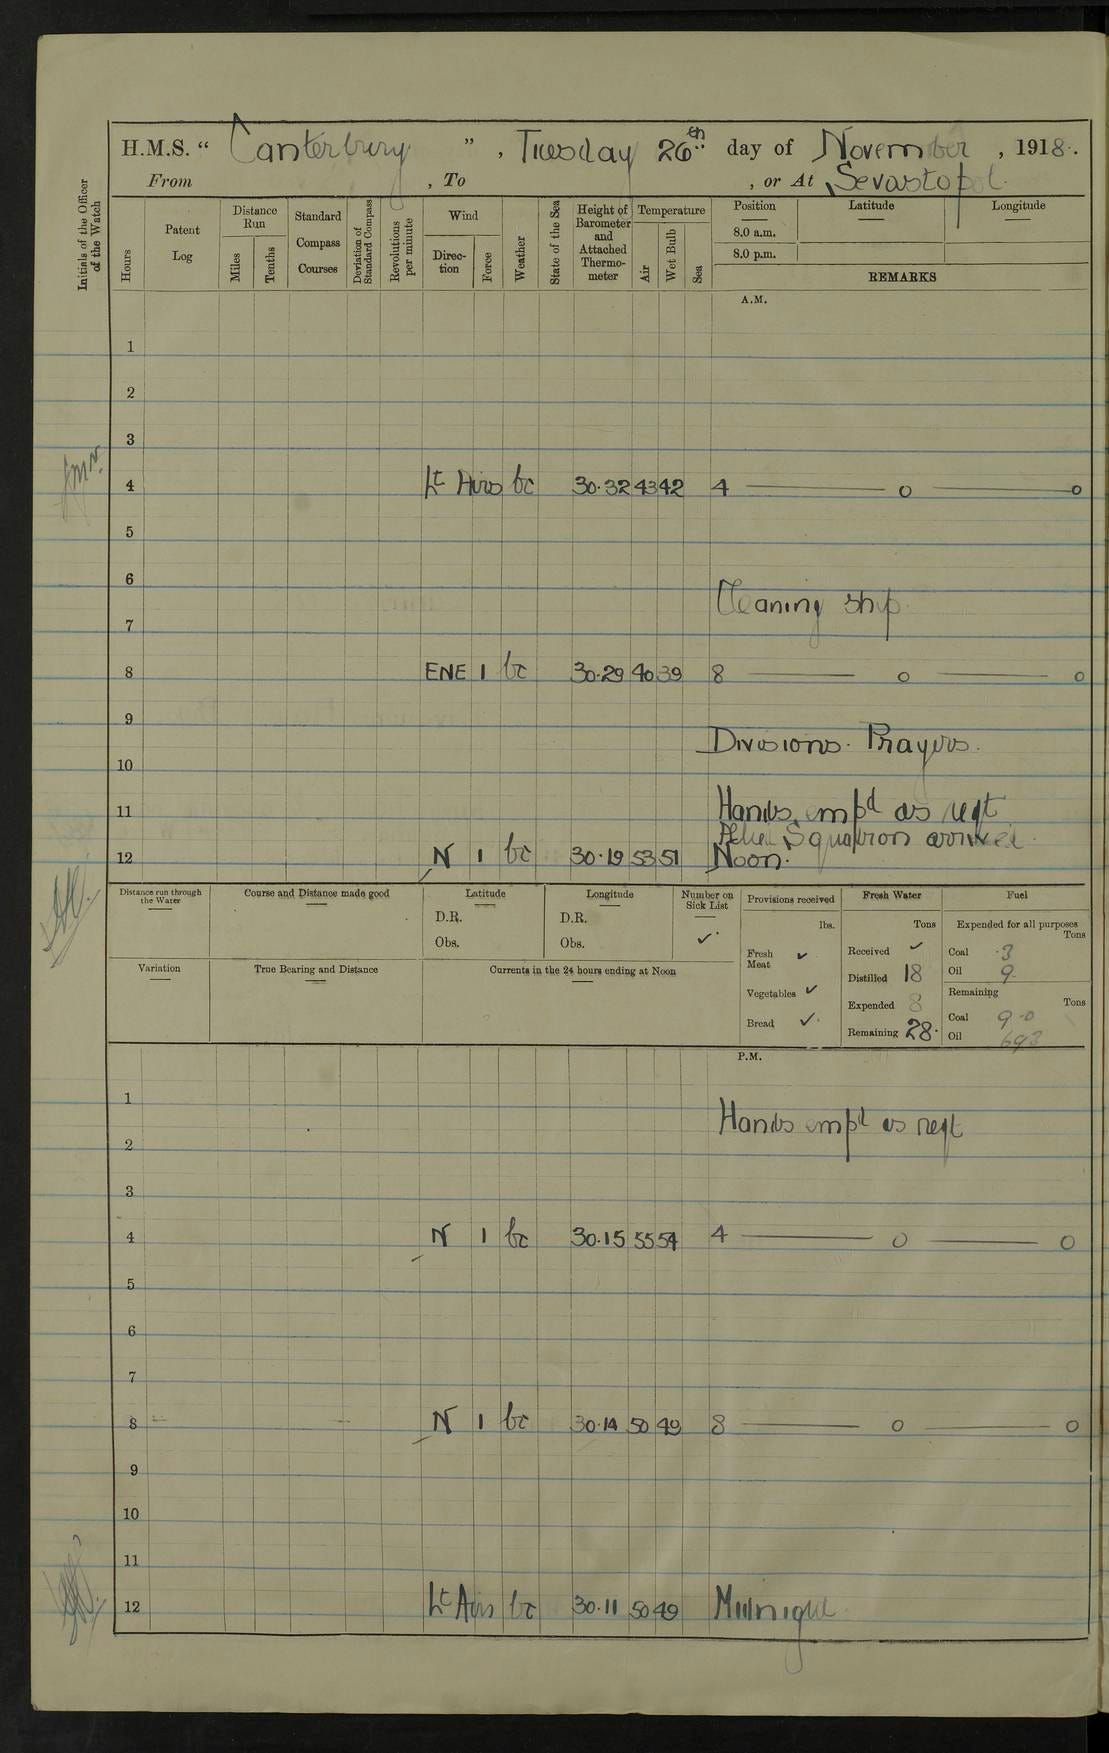 H.M.S. “ Canterbury ” , Tuesday 26th day of November , 1918.
From , To , or At Sevastopol
Initials of the Officer of the Watch
Hours
Patent Log
Distance Run
Miles
Tenths
Standard Compass Courses
Deviation of Standard Compass
Revolutions per minute
Wind
Direction
Force
Weather
State of the Sea
Height of Barometer and Attached Thermometer
Temperature
Air
Wet Bulb
Sea
Position Latitude Longitude
8.0 a.m.
8.0 p.m.
REMARKS
A.M.
1
2
3
4 Lt Airs bc 30.32 43 42 4 — o — o
5
6
Cleaning ship
7
8 ENE 1 bc 30.29 40 39 8 — o — o
9
Divisions. Prayers.
10
11 Hands emp'd as reqt
Squadron arrived
12 N 1 bc 30.19 53 51 Noon.
Distance run through the Water
Course and Distance made good
Latitude
D.R.
Obs.
Longitude
D.R.
Obs.
Number on Sick List
✓
Provisions received
lbs.
Fresh Meat ✓
Vegetables ✓
Bread ✓
Fresh Water
Tons
Received ✓
Distilled 18
Expended 8
Remaining 28.
Fuel
Expended for all purposes
Tons
Coal .3
Oil 9
Remaining
Tons
Coal 9.0
Oil 693
Variation
True Bearing and Distance
Currents in the 24 hours ending at Noon
P.M.
1
Hands emp'd as reqt
2
3
4 N 1 bc 30.15 55 54 4 — o — o
5
6
7
8 N 1 bc 30.14 50 49 8 — o — o
9
10
11
12 Lt Airs bc 30.11 50 49 Midnight